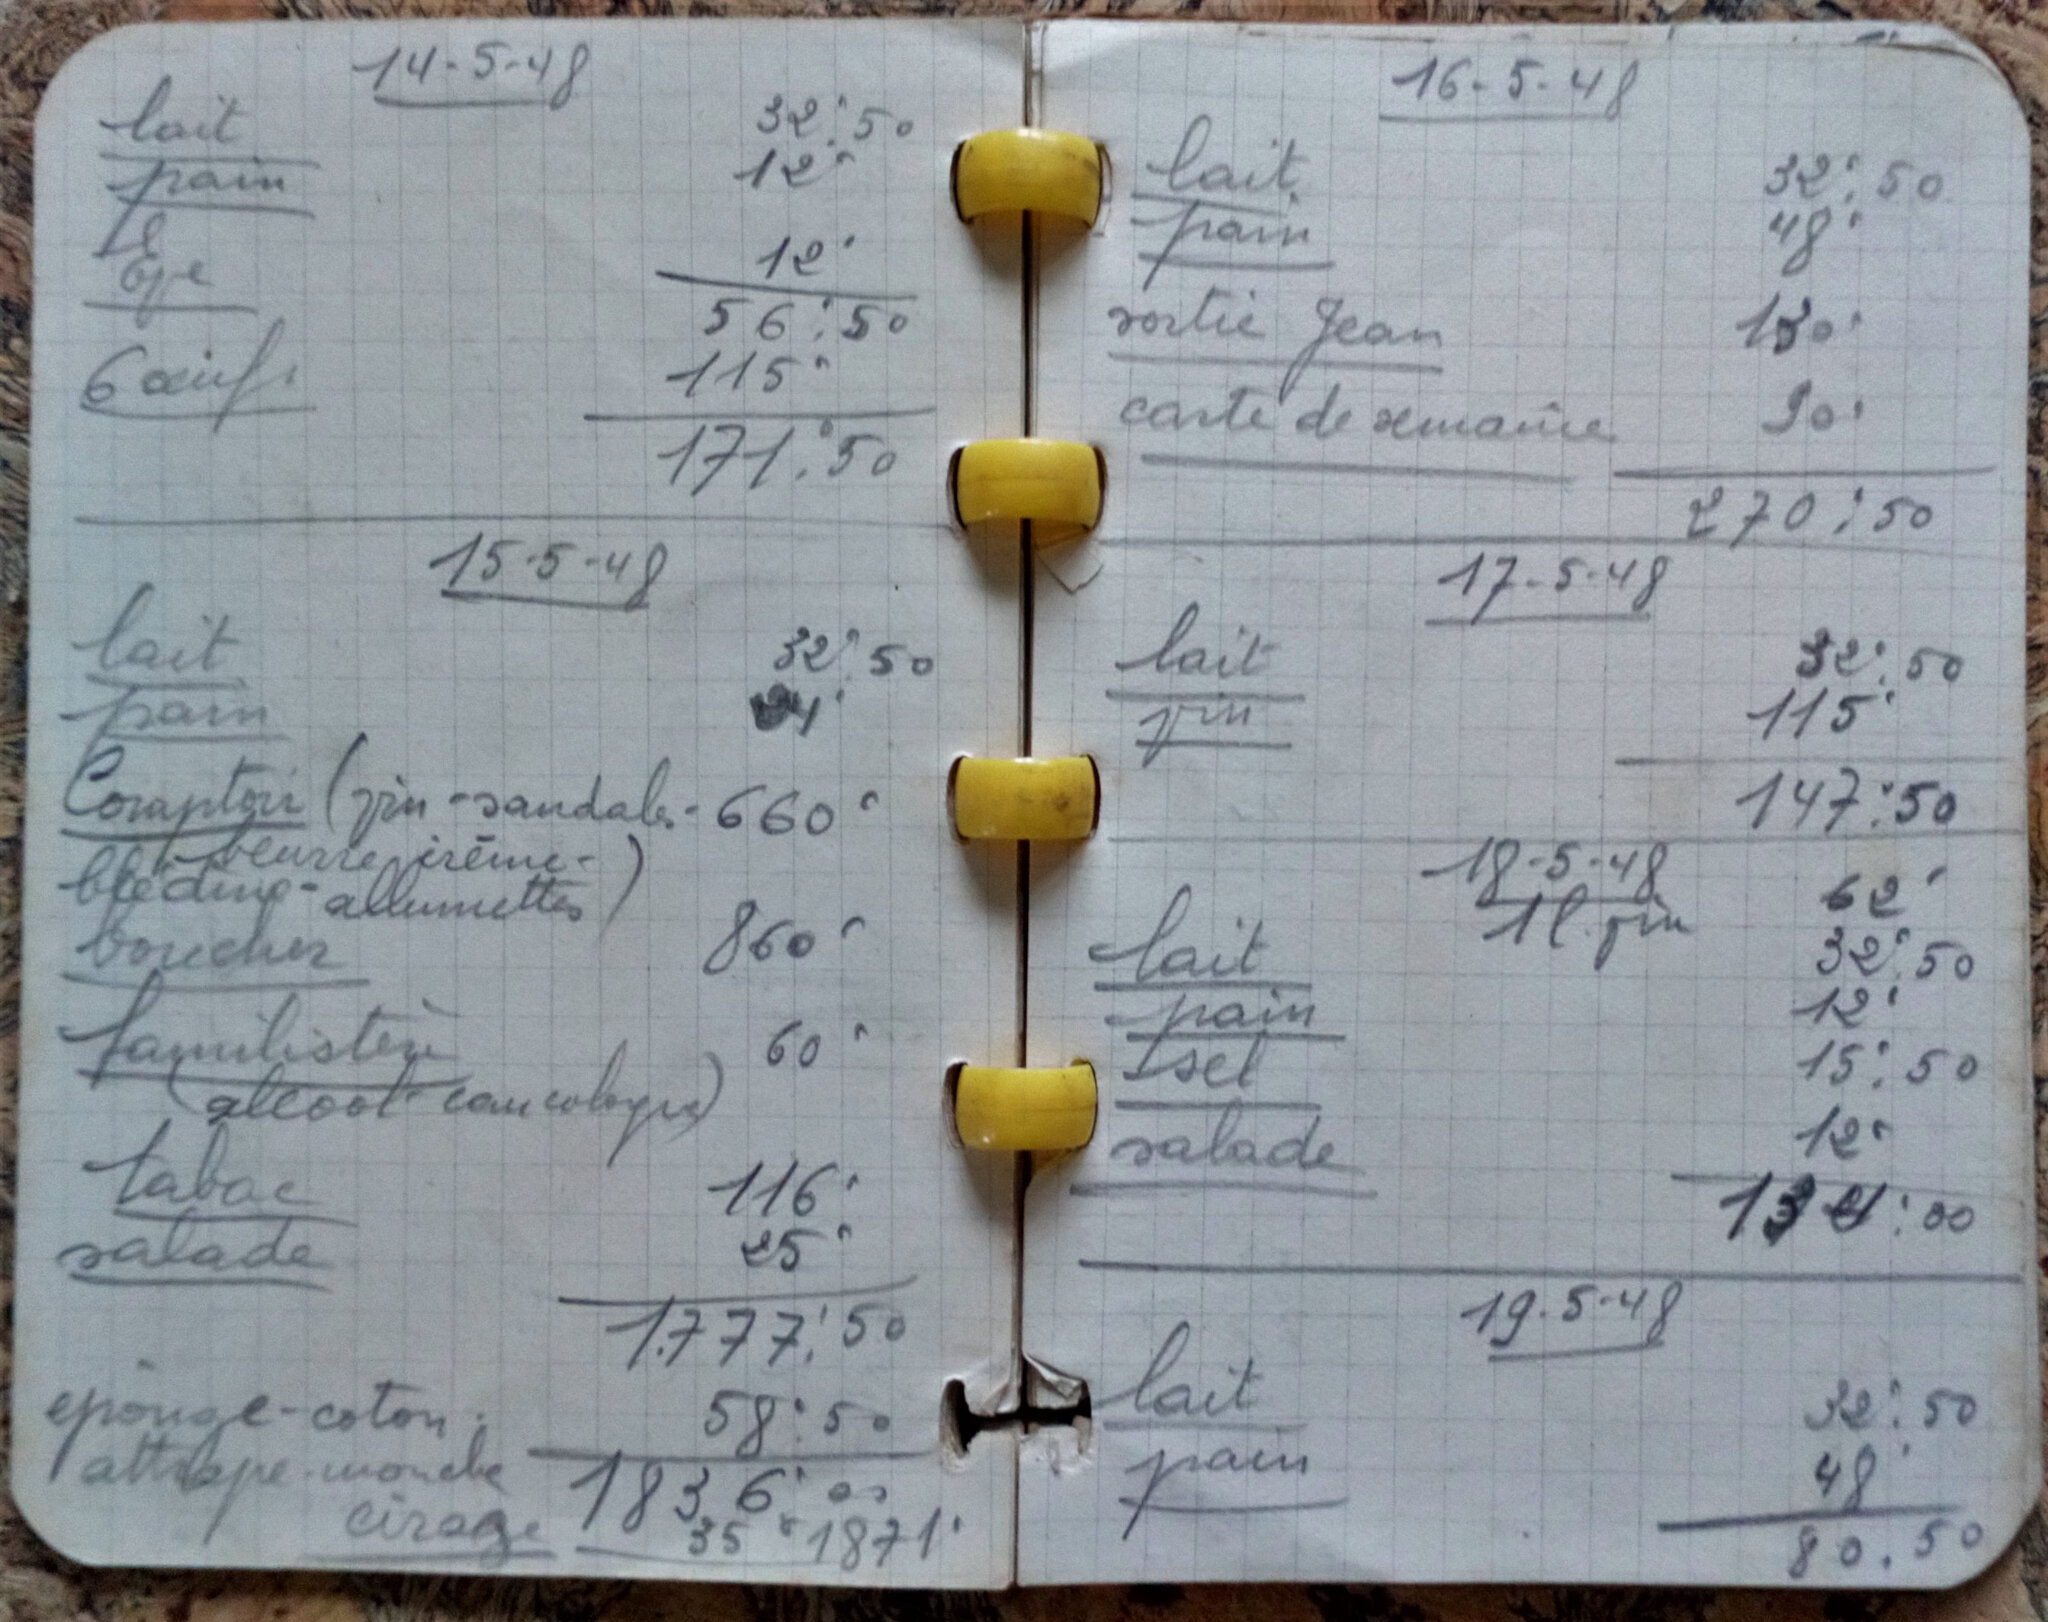 14-5-48
lait 32:50
pain 12'
12'
56:50
6 œufs 115'
171:50
15-5-48
lait 32:50
pain 24'
Comptoir (vin - sandales - 660'
beurre crème -
blédine - allumettes)
boucher 860'
familistère 60'
(alcool - eau cologne)
tabac 116'
salade 25'
1.777:50
éponge - coton. 58:50
attrape-mouche 1836:00
cirage 35' 1871'
16-5-48
lait 32:50
pain 48'
sortie Jean 100'
carte de semaine 90'
270:50
17-5-48
lait 32:50
vin 115'
147:50
18-5-48
1 l. vin 62'
lait 32:50
pain 12'
sel 15:50
salade 12'
134:00
19-5-48
lait 32:50
pain 48'
80.50